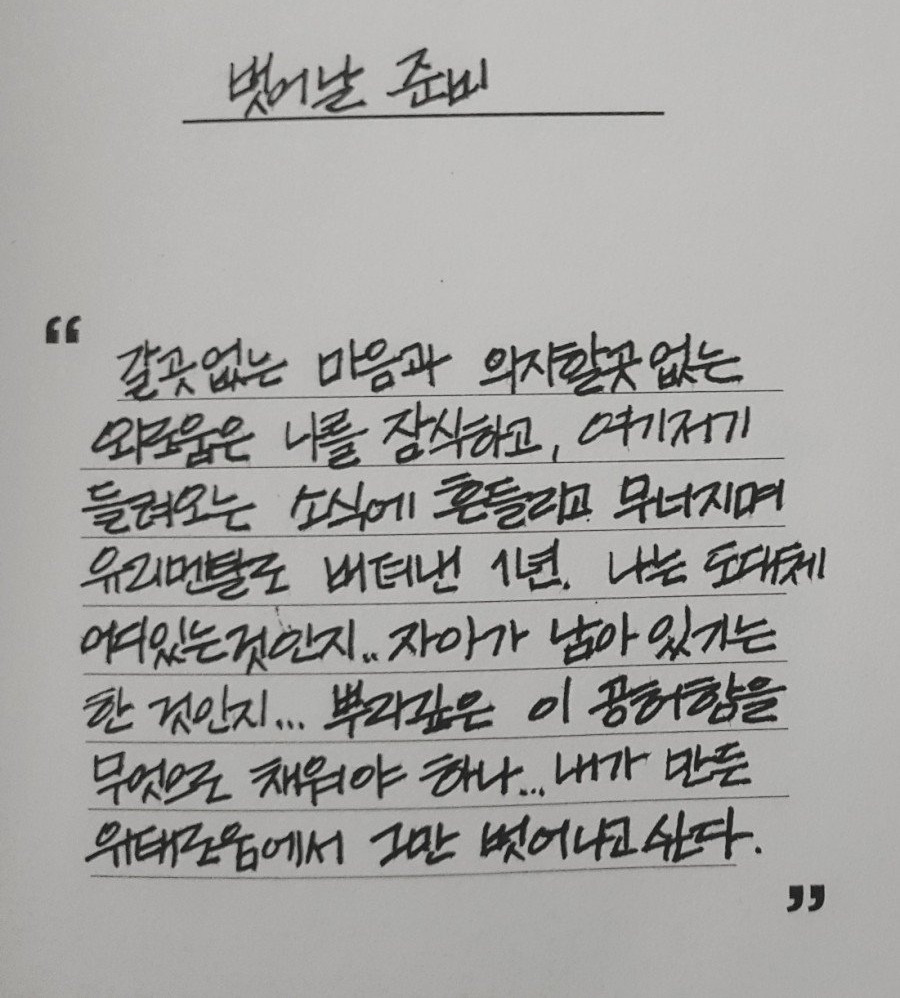 벗어날 준비
“
갈곳없는 마음과 의지할곳없는
외로움은 나를 잠식하고, 여기저기
들려오는 소식에 흔들리고 무너지며
유리멘탈로 버텨낸 1년. 나는 도대체
어디있는것인지.. 자아가 남아 있기는
한 것인지... 뿌리깊은 이 공허함을
무엇으로 채워야 하나... 내가 만든
위태로움에서 그만 벗어나고싶다.
”